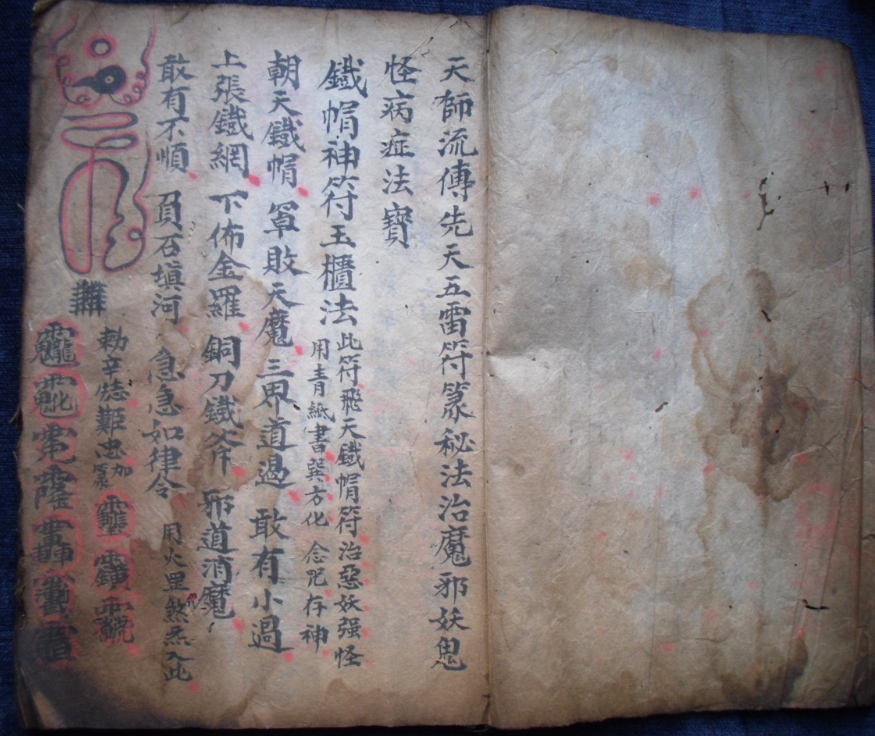 天師流傳先天五雷符篆秘法治魔邪妖鬼
怪病症法寶
鐵帽神符玉櫃法
此符飛天鐵帽符治惡妖强怪
用青紙書巽方化 念咒存神
朝天鐵帽 罩敗天魔 三界道過 敢有小過
上張鐵網 下佈金羅 銅刀鐵斧 邪道消魔
敢有不順 負石填河 急急如律令
用火罡煞炁入此
勅辛